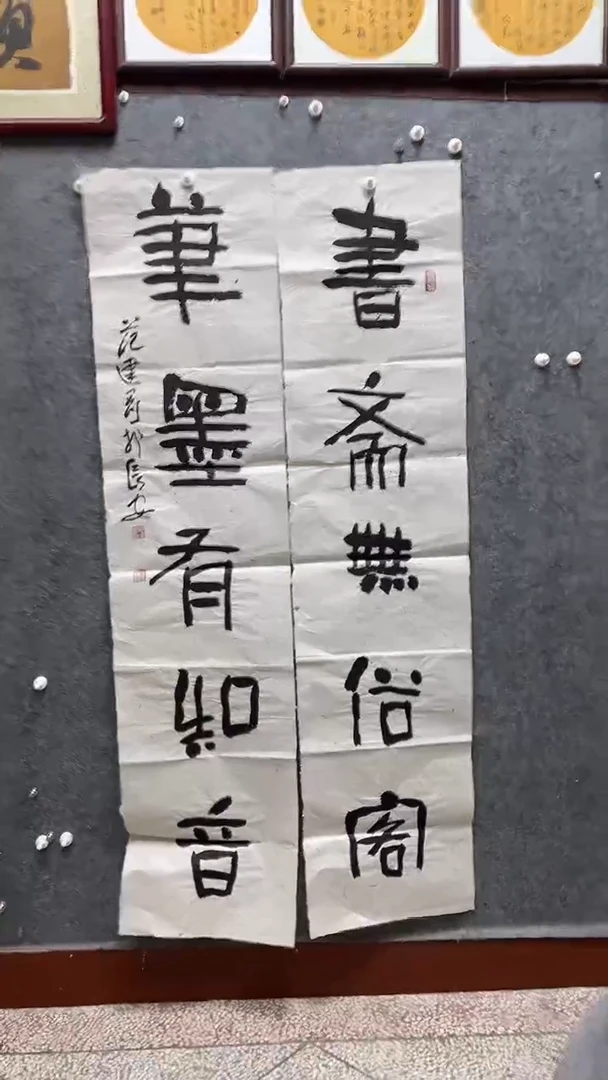 書齋無俗客
筆墨有知音
范建哥於長安